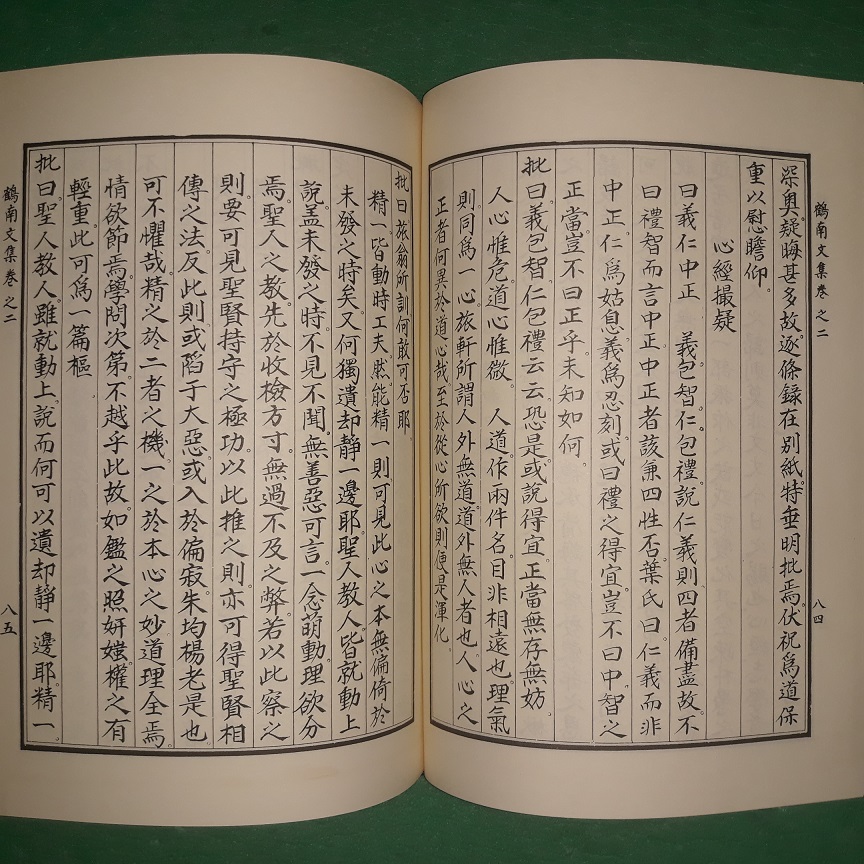 鶴南文集卷之二
八四
深奧疑晦甚多故逐條錄在別紙特垂明批焉伏祝爲道保
重以慰瞻仰
心經撮疑
曰義仁中正 義包智仁包禮說仁義則四者備盡故不
曰禮智而言中正中正者該兼四性否葉氏曰仁義而非
中正仁爲姑息義爲忍刻或曰禮之得宜豈不曰中智之
正當豈不曰正乎未知如何
批曰義包智仁包禮云云恐是或說得宜正當無存無妨
人心惟危道心惟微 人道作兩件名目非相遠也理氣
則同爲一心旅軒所謂人外無道道外無人者也人心之
正者何異於道心哉至於從心所欲則便是渾化
批曰旅翁所訓何敢可否耶
精一皆動時工夫然能精一則可見此心之本無偏倚於
未發之時矣又何獨遺却靜一邊耶聖人教人皆就動上
說盖未發之時不見不聞無善惡可言一念萌動理欲分
焉聖人之教先於收檢方寸無過不及之弊若以此察之
則要可見聖賢持守之極功以此推之則亦可得聖賢相
傳之法反此則或陷于大惡或入於偏寂朱均楊老是也
可不懼哉精之於二者之機一之於本心之妙道理全焉
情欲節焉學問次第不越乎此故如鑑之照妍媸權之有
輕重此可爲一篇樞
批曰聖人教人雖就動上說而何可以遺却靜一邊耶精一
鶴南文集卷之二
八五